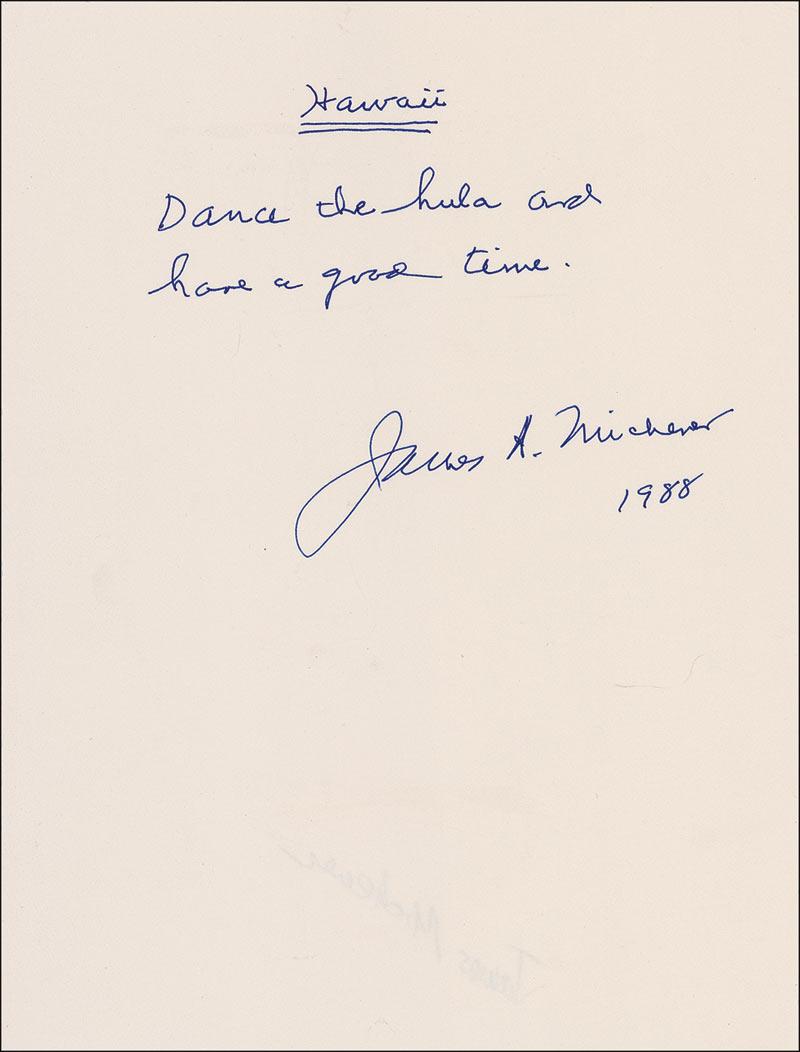 Hawaii
Dance the hula and
have a good time.
James A. Michener
1988
James Michener